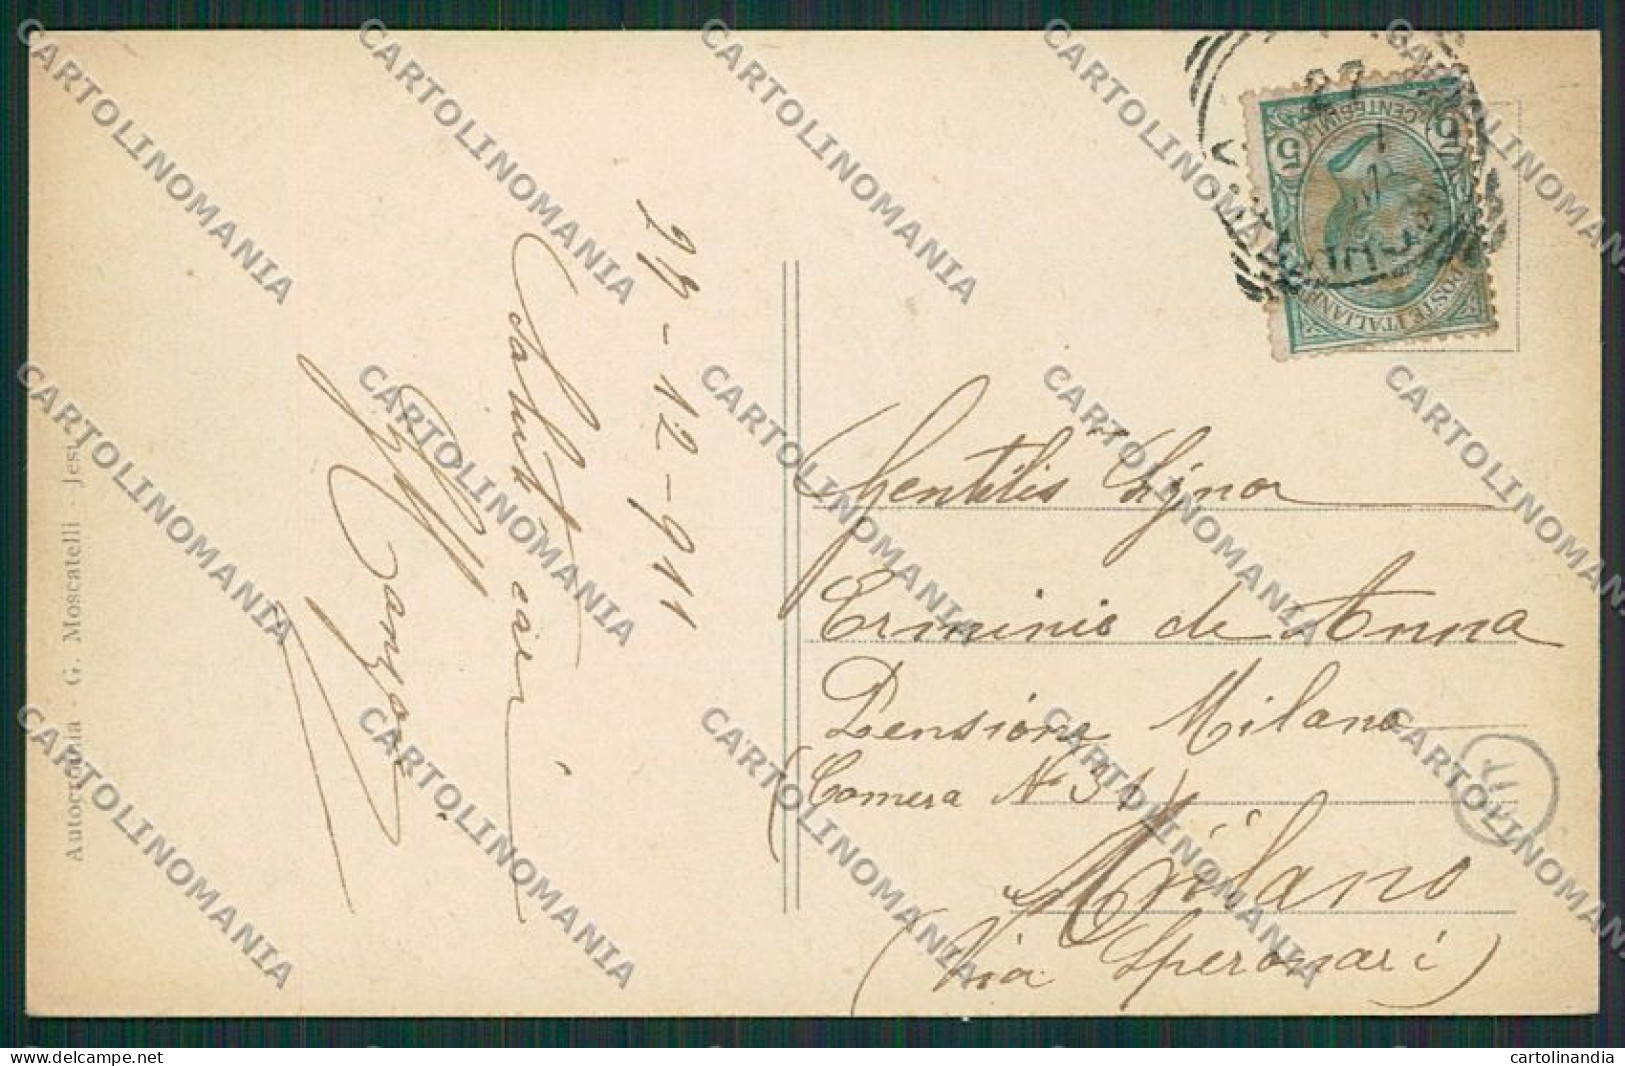 29-12-911
Saluti cari
Gentilis Signor
Erminio de Anna
Pensione Milano
(Camera N° 31)
Milano
(Via Speronari)
Autocromia - G. Moscatelli - Jesi
POSTE ITALIANE
CENTESIMI
5
5
27
III
CARTOLINOMANIA
www.delcampe.net
cartolinandia